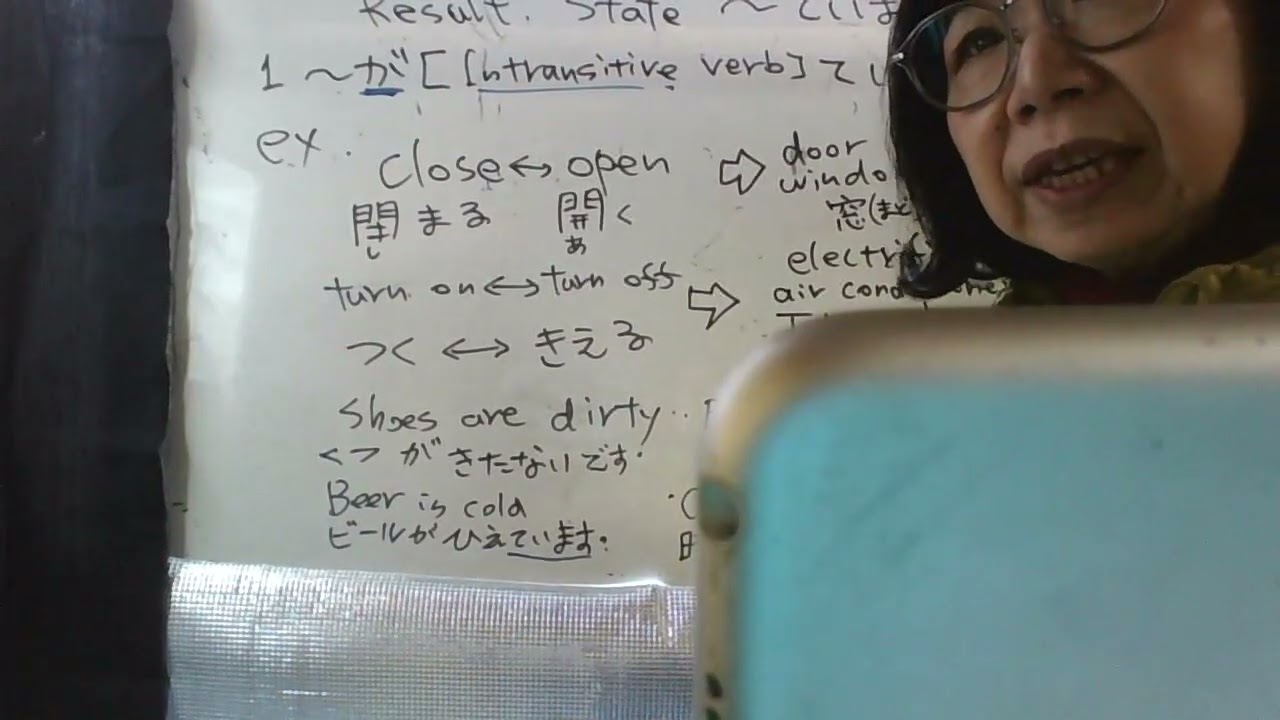 Result. State ～てい
1 ～が [Intransitive verb] て
ex. close ↔ open ⇨ door
windo
閉まる 開く 窓(ま
し あ
turn on ↔ turn off ⇨ electri
air cond
つく ↔ きえる
Shoes are dirty..
くつがきたないです.
Beer is cold
ビールがひえています.